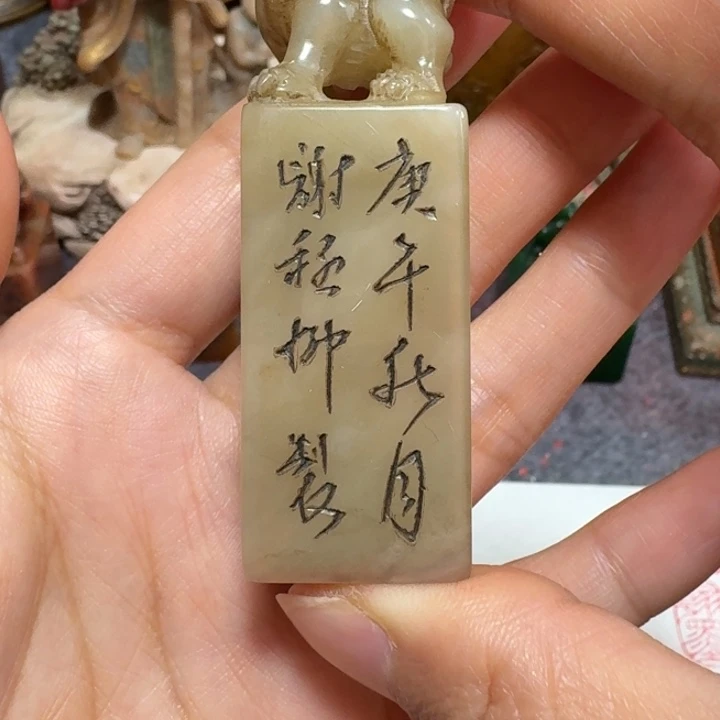 庚午秋月
謝稚柳製